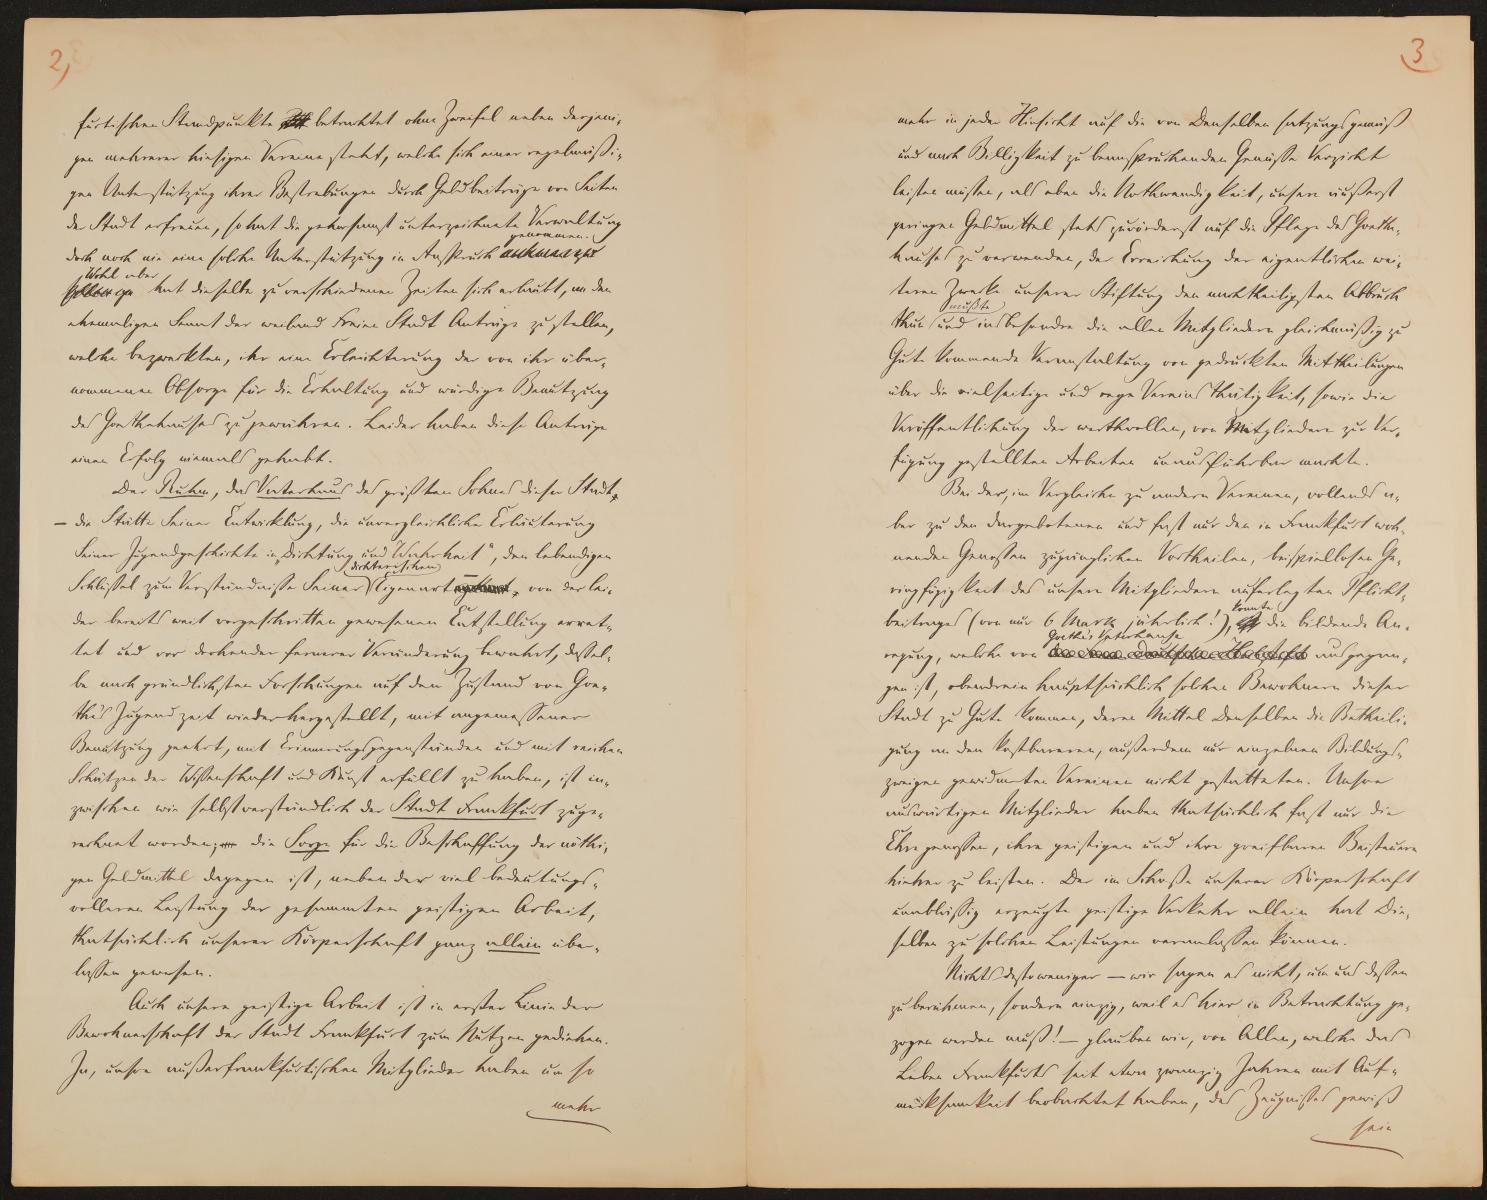 2)
furtischen Standpunkte betrachtet ohne Zweifel neben derjeni-
gen mehrerer hiesigen Vereine steht, welche sich einer regelmäßi-
gen Unterstützung ihrer Bestrebungen durch Geldbeiträge von Seiten
der Stadt erfreuen, so hat die gehorsamst unterzeichnete Verwaltung
genommen.
doch noch nie eine solche Unterstützung in Anspruch
Wohl aber
hat dieselbe zu verschiedenen Zeiten sich erlaubt, an den
ehemaligen Senat der weiland Freien Stadt Anträge zu stellen,
welche bezweckten, ihr eine Erleichterung der von ihr über-
nommenen Obsorge für die Erhaltung und würdige Benutzung
des Goethehauses zu gewähren. Leider haben diese Anträge
einen Erfolg niemals gehabt.
Der Ruhm, das Vaterhaus des größten Sohnes dieser Stadt,
– die Stätte Seiner Entwicklung, die unvergleichliche Erläuterung
Seiner Jugendgeschichte in „Dichtung und Wahrheit“, den lebendigen
dichterischen
Schlüssel zum Verständnisse Seiner Eigenart –, von der lei-
der bereits weit vorgeschritten gewesenen Entstellung erret-
tet und vor drohender fernerer Veränderung bewahrt, dassel-
be nach gründlichsten Forschungen auf den Zustand von Goe-
the's Jugendzeit wiederhergestellt, mit angemessener
Benutzung geehrt, mit Erinnerungsgegenständen und mit reichen
Schätzen der Wissenschaft und Kunst erfüllt zu haben, ist in-
zwischen wie selbstverständlich der Stadt Frankfurt zuge-
rechnet worden; die Sorge für die Beschaffung der nöthi-
gen Geldmittel dagegen ist, neben der viel bedeutungs-
volleren Leistung der gesammten geistigen Arbeit,
thatsächlich unserer Körperschaft ganz allein über-
lassen gewesen.
Auch unsere geistige Arbeit ist in erster Linie der
Bewohnerschaft der Stadt Frankfurt zum Nutzen gediehen.
Ja, unsre außerfrankfurtischen Mitglieder haben um so
mehr
3
mehr in jeder Hinsicht auf die von Denselben satzungsgemäß
und nach Billigkeit zu beanspruchenden Genüsse Verzicht
leisten müssen, als eben die Nothwendigkeit, unsere äußerst
geringen Geldmittel stets zuvörderst auf die Pflege des Goethe-
hauses zu verwenden, der Erreichung der eigentlichen wei-
teren Zwecke unserer Stiftung den nachtheiligsten Abbruch
mußte
thun und insbesondre die allen Mitgliedern gleichmäßig zu
Gute kommende Veranstaltung von gedruckten Mittheilungen
über die vielseitige und rege Vereins Thätigkeit, sowie die
Veröffentlichung der werthvollen, von Mitgliedern zur Ver-
fügung gestellten Arbeiten unausführbar machte.
Bei der, im Vergleiche zu andern Vereinen, vollends a-
ber zu den dargebotenen und fast nur den in Frankfurt woh-
nenden Genossen zugänglichen Vortheilen, beispiellosen Ge-
ringfügigkeit des unsern Mitgliedern auferlegten Pflicht-
konnte
beitrages (von nur 6 Mark jährlich!), die bildende An-
Goethe's Vaterhause
regung, welche von ausgegan-
gen ist, obendrein hauptsächlich solchen Bewohnern dieser
Stadt zu Gute kommen, deren Mittel denselben die Betheili-
gung an den kostbareren, außerdem nur einzelnen Bildungs-
zweigen gewidmeten Vereinen nicht gestatteten. Unsre
auswärtigen Mitglieder haben thatsächlich fast nur die
Ehre genossen, ihre geistigen und ihre greifbaren Beisteuern
hieher zu leisten. Der im Schoße unserer Körperschaft
unablässig erzeugte geistige Verkehr allein hat Die-
selben zu solchen Leistungen veranlassen können.
Nichts destoweniger – wir sagen es nicht, um uns dessen
zu berühmen, sondern einzig, weil es hier in Betrachtung ge-
zogen werden muß! – glauben wir, von Allen, welche das
Leben Frankfurts seit etwa zwanzig Jahren mit Auf-
merksamkeit beobachtet haben, des Zeugnisses gewiß
sein